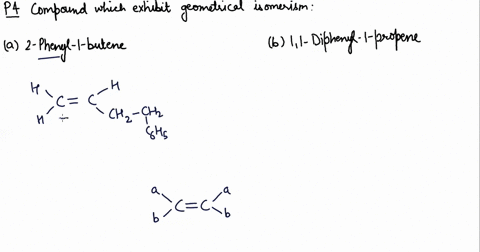 P4 Compound which exhibit geometrical isomerism:
(a) 2-Phenyl-1-butene (b) 1,1-Diphenyl-1-propene
H H
C = C
H CH2-CH2
C6H5
a a
C=C
b b